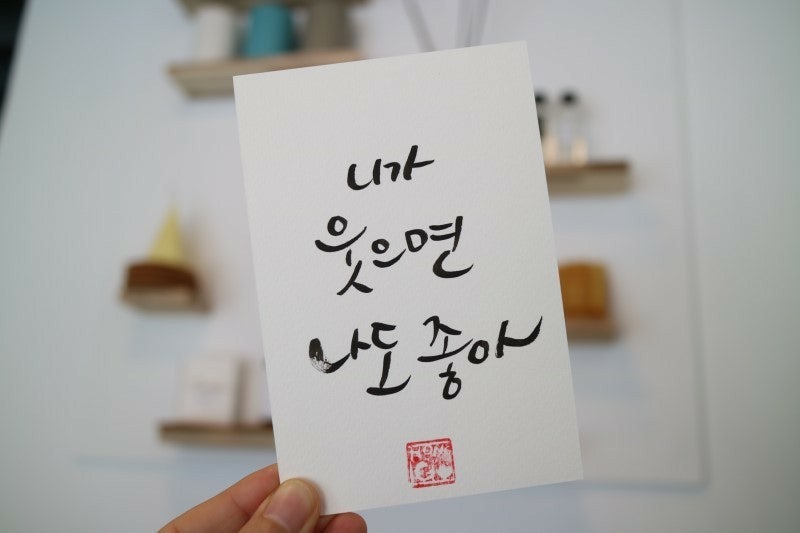 니가
웃으면
나도 좋아